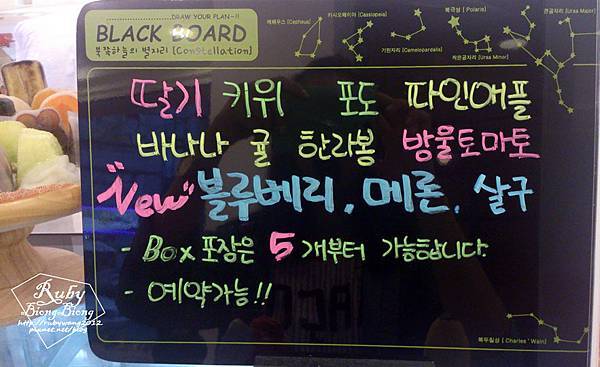 DRAW YOUR PLAN~!!
BLACK BOARD
북쪽하늘의 별자리 [Constellation]
케페우스 [Cepheus]
카시오페이아 [Cassiopeia]
북극성 [Polaris]
큰곰자리 [Ursa Major]
기린자리 [Camelopardalis]
작은곰자리 [Ursa Minor]
딸기 키위 포도 파인애플
바나나 귤 한라봉 방울토마토
"New" 블루베리, 메론, 살구
- Box 포장은 5개부터 가능합니다.
- 예약가능!!
북두칠성 [Charles' Wain]
Ruby
Biong Biong
http://rubywang2012
pixnet.net/blog